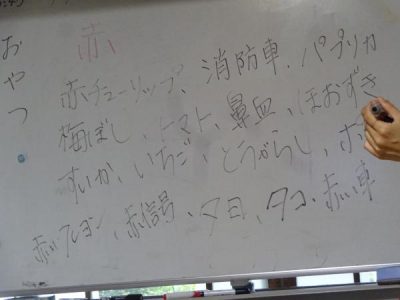 おやつ
赤
赤チューリップ、消防車、パプリカ
梅ぼし、トマト、鼻血、ほおずき
すいか、いちご、とうがらし、ポ
赤いクレヨン、赤信号、夕日、タコ、赤い車